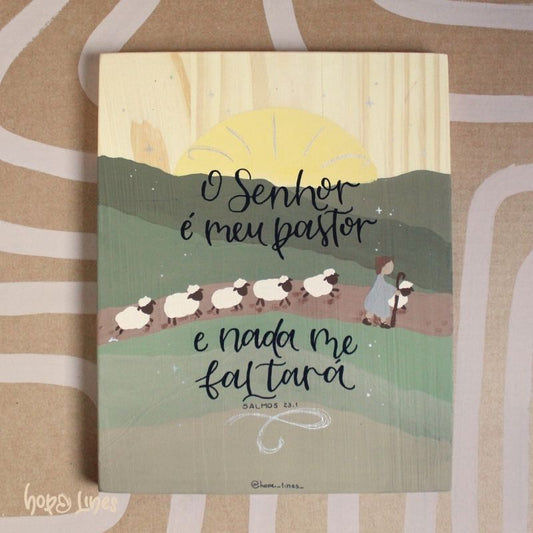 O Senhor
é meu pastor
e nada me
faltará
SALMOS 23.1
@hope_lines_
hope lines